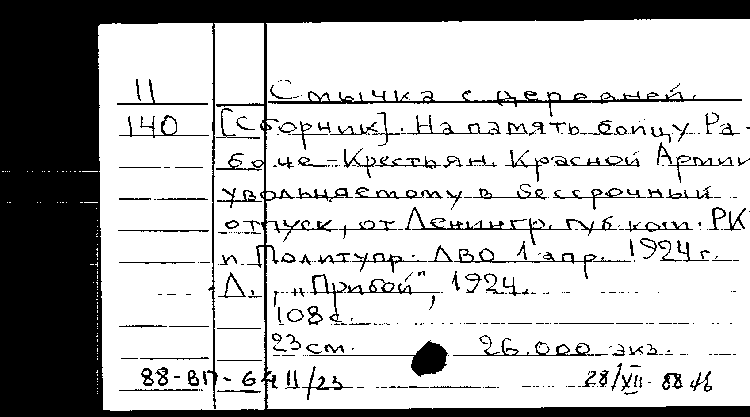 11 Смычка с деревней.
140 [Сборник]. На память бойцу Ра-
боче-Крестьян. Красной Армии
увольняемому в бессрочный
отпуск, от Ленингр. губ. ком. РК
и Политупр. ЛВО 1 апр. 1924 г.
Л., „Прибой", 1924.
108 с.
23 см. 26.000 экз.
88-ВП-6411/23 28/XII-88